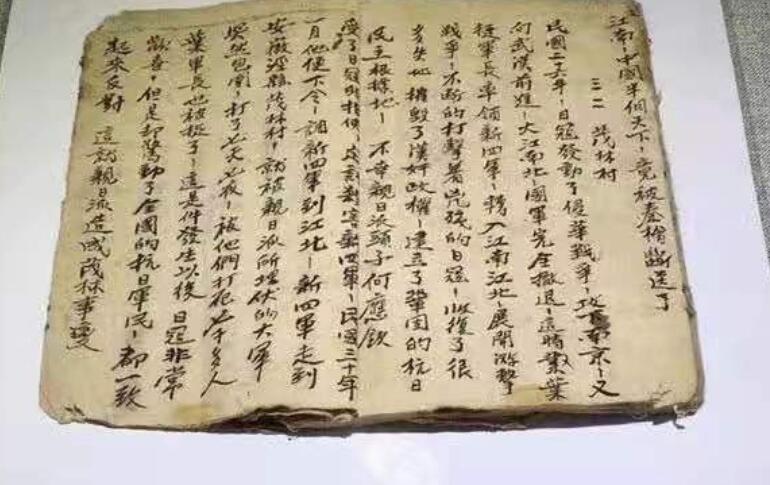 江南－中國半個天下－竟被秦檜斷送了
三二　茂林村
民國二六年－日寇發動了侵華戰爭－攻下南京－又
向武漢前進－大江南北國軍完全撤退－這時葉
挺軍長率領新四軍－轉入江南江北－展開游擊
戰爭－不断的打擊著兇殘的日寇－收復了很
多失地摧毀了漢奸政權－建立了鞏固的抗日
民主根據地－不幸親日派頭子何應欽
受了日寇的指使－

民國三十年
一月他便下令－調新四軍到江北－新四軍走到
安徽涇縣茂林村－就被親日派所埋伏的大軍
突然包圍－打了七天七夜－被他們打死七千多人
葉軍長也被捉了－這是件發生以後　日寇非常
歡喜－但是却驚動了全國的抗日軍民－都一致
起來反對　這就親日派造成茂林事变